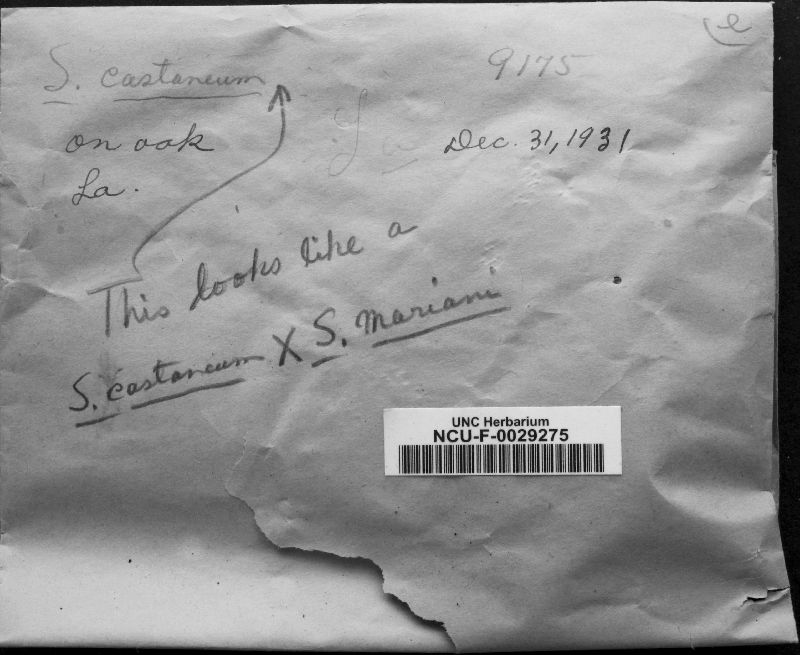 e
S. castaneum
9175
on oak
Dec. 31, 1931
La.
This looks like a
S. castaneum X S. mariani
UNC Herbarium
NCU-F-0029275